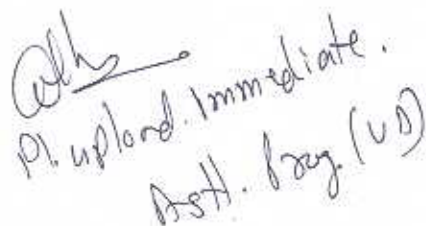 Pl. upload. Immediate.
Asstt. Prog. (UD)